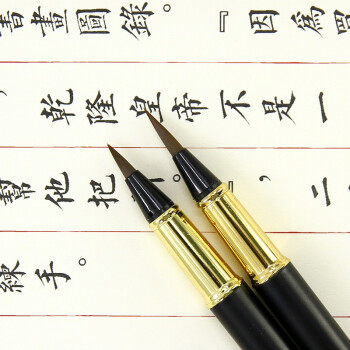 書畫圖錄。『因為
，乾隆皇帝不是一
幫他把。』，二
練手。